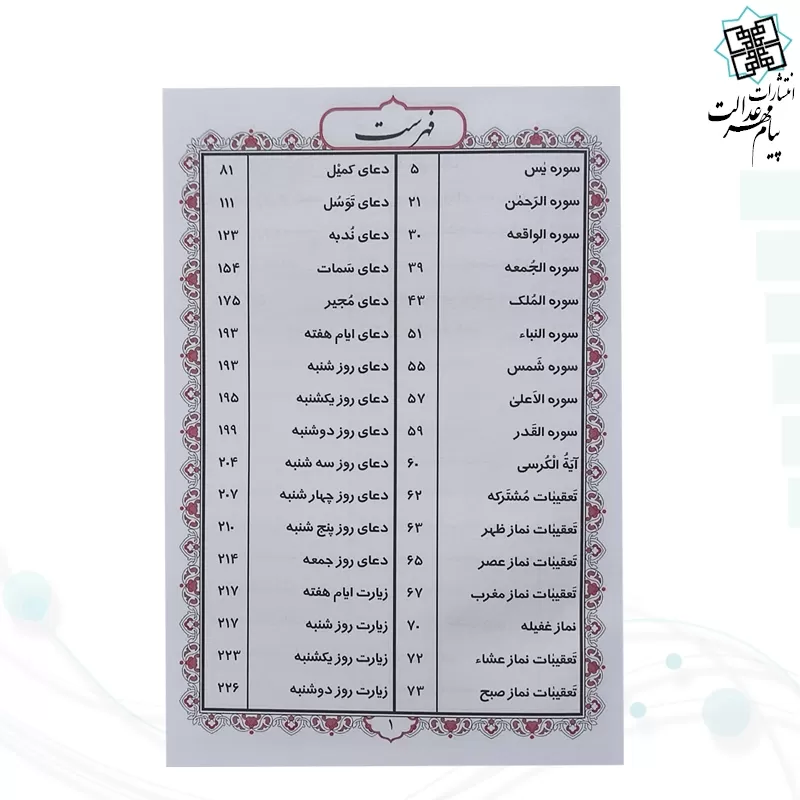 انتشارات
پیام مهر عدالت
فهرست
سوره یٰس ۵
سوره الرَحمٰن ۲۱
سوره الواقعه ۳۰
سوره الجُمعه ۳۹
سوره المُلک ۴۳
سوره النباء ۵۱
سوره شَمس ۵۵
سوره الاَعلیٰ ۵۷
سوره القَدر ۵۹
آیَةُ الْکُرسی ۶۰
تَعقیبٰات مُشتَرکه ۶۲
تَعقیبٰات نماز ظهر ۶۳
تَعقیبٰات نماز عصر ۶۵
تَعقیبٰات نماز مغرب ۶۷
نماز غفیله ۷۰
تَعقیبٰات نماز عشاء ۷۲
تَعقیبٰات نماز صبح ۷۳
دعای کمیْل ۸۱
دعای تَوَسُل ۱۱۱
دعای نُدبه ۱۲۳
دعای سَمات ۱۵۴
دعای مُجیر ۱۷۵
دعای ایام هفته ۱۹۳
دعای روز شنبه ۱۹۳
دعای روز یکشنبه ۱۹۵
دعای روز دوشنبه ۱۹۹
دعای روز سه شنبه ۲۰۴
دعای روز چهار شنبه ۲۰۷
دعای روز پنج شنبه ۲۱۰
دعای روز جمعه ۲۱۴
زیارت ایام هفته ۲۱۷
زیارت روز شنبه ۲۱۷
زیارت روز یکشنبه ۲۲۳
زیارت روز دوشنبه ۲۲۶
۱